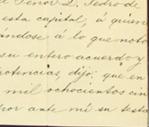 Señor D. Pedro de
esta capital, á quien
ándose á lo que noto
su entero acuerdo y
potencias, dijo: que en
mil ochocientos cin
por ante mi su testa